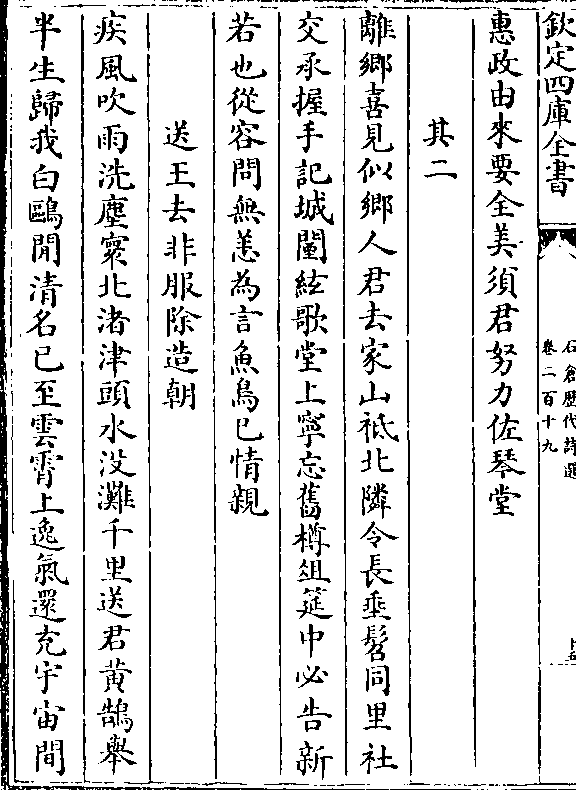 欽定四庫全書
石倉歷代詩選
卷二百十九
惠政由來要全美須君努力佐琴堂
其二
離鄉喜見似鄉人君去家山祗北隣令長垂髫同里社
交承握手記城闉絃歌堂上寧忘舊樽俎筵中必告新
若也從容問無恙為言魚鳥已情親
送王去非服除造朝
疾風吹雨洗塵寰北渚津頭水没灘千里送君黄鵠舉
半生歸我白鷗閒清名已至雲霄上逸氣還充宇宙間